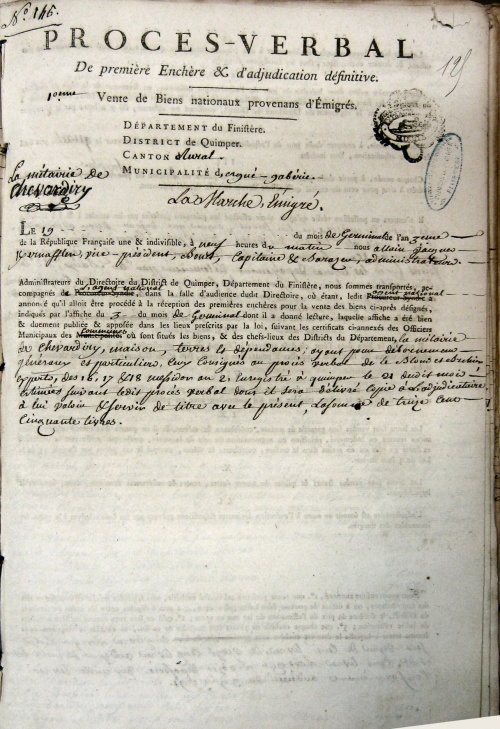 N.o 146.
PROCES-VERBAL
De première Enchère & d'adjudication définitive.
125
1.ere Vente de Biens nationaux provenans d'Émigrés.
DÉPARTEMENT du Finistère.
DISTRICT de Quimper.
CANTON Rural
MUNICIPALITÉ d'ergué-gabéric
La métairie de
Chevardiry
La Marche, Émigré.
LE 19 du mois de Germinal de l'an 3eme
de la République Française une & indivisible, à neuf heures du matin nous allain Jacques
Kernafflen, vice-président, Capitaine & Barazer, administrateurs
Administrateurs du Directoire du District de Quimper, Département du Finistère, nous sommes transportés, ac-
compagnés de l'agent national Procureur-Syndic, dans la salle d'audience dudit Directoire, où étant, ledit agent national Procureur-Syndic a
annoncé qu'il alloit être procédé à la réception des premières enchères pour la vente des biens ci-après désignés,
indiqués par l'affiche du 3 du mois de Germinal dont il a donné lecture, laquelle affiche a été bien
& duement publiée & apposée dans les lieux prescrits par la loi, suivant les certificats ci-annexés des Officiers
Municipaux des communes Municipalités où sont situés les biens, & des chefs-lieux des Districts du Département, la métairie
du Chevardiry, maison, terres & dépendances; ayant pour débornement
généraux et particuliers, ceux consignés au procès verbal de
experts, des 16, 17 & 18 messidor an 2, enregistré à quimper le 21 dudit mois
estimées suivant ledit procès verbal dont il sera délivré copie à L'adjudicataire,
à lui valoir & servir de titre avec le présent, La somme de treize cent
cinquante livres.